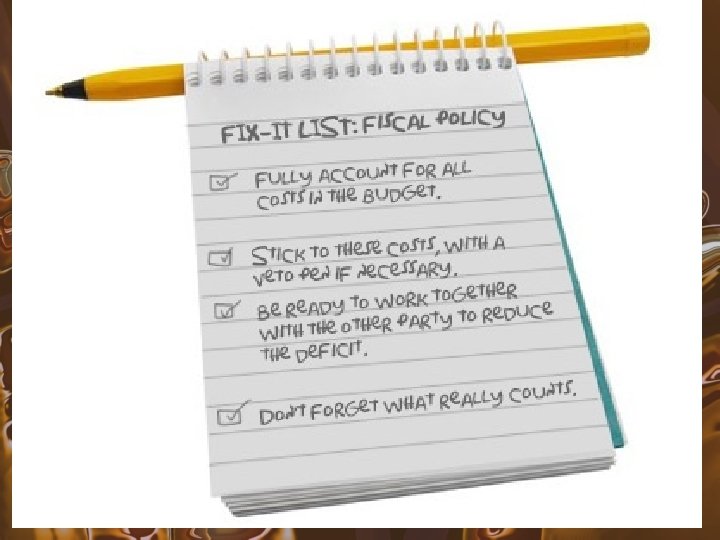 FIX-IT LIST: FISCAL POLICY
FULLY ACCOUNT FOR ALL
COSTS IN THE BUDGET.
STICK TO THESE COSTS, WITH A
VETO PEN IF NECESSARY.
BE READY TO WORK TOGETHER
WITH THE OTHER PARTY TO REDUCE
THE DEFICIT.
DON'T FORGET WHAT REALLY COUNTS.